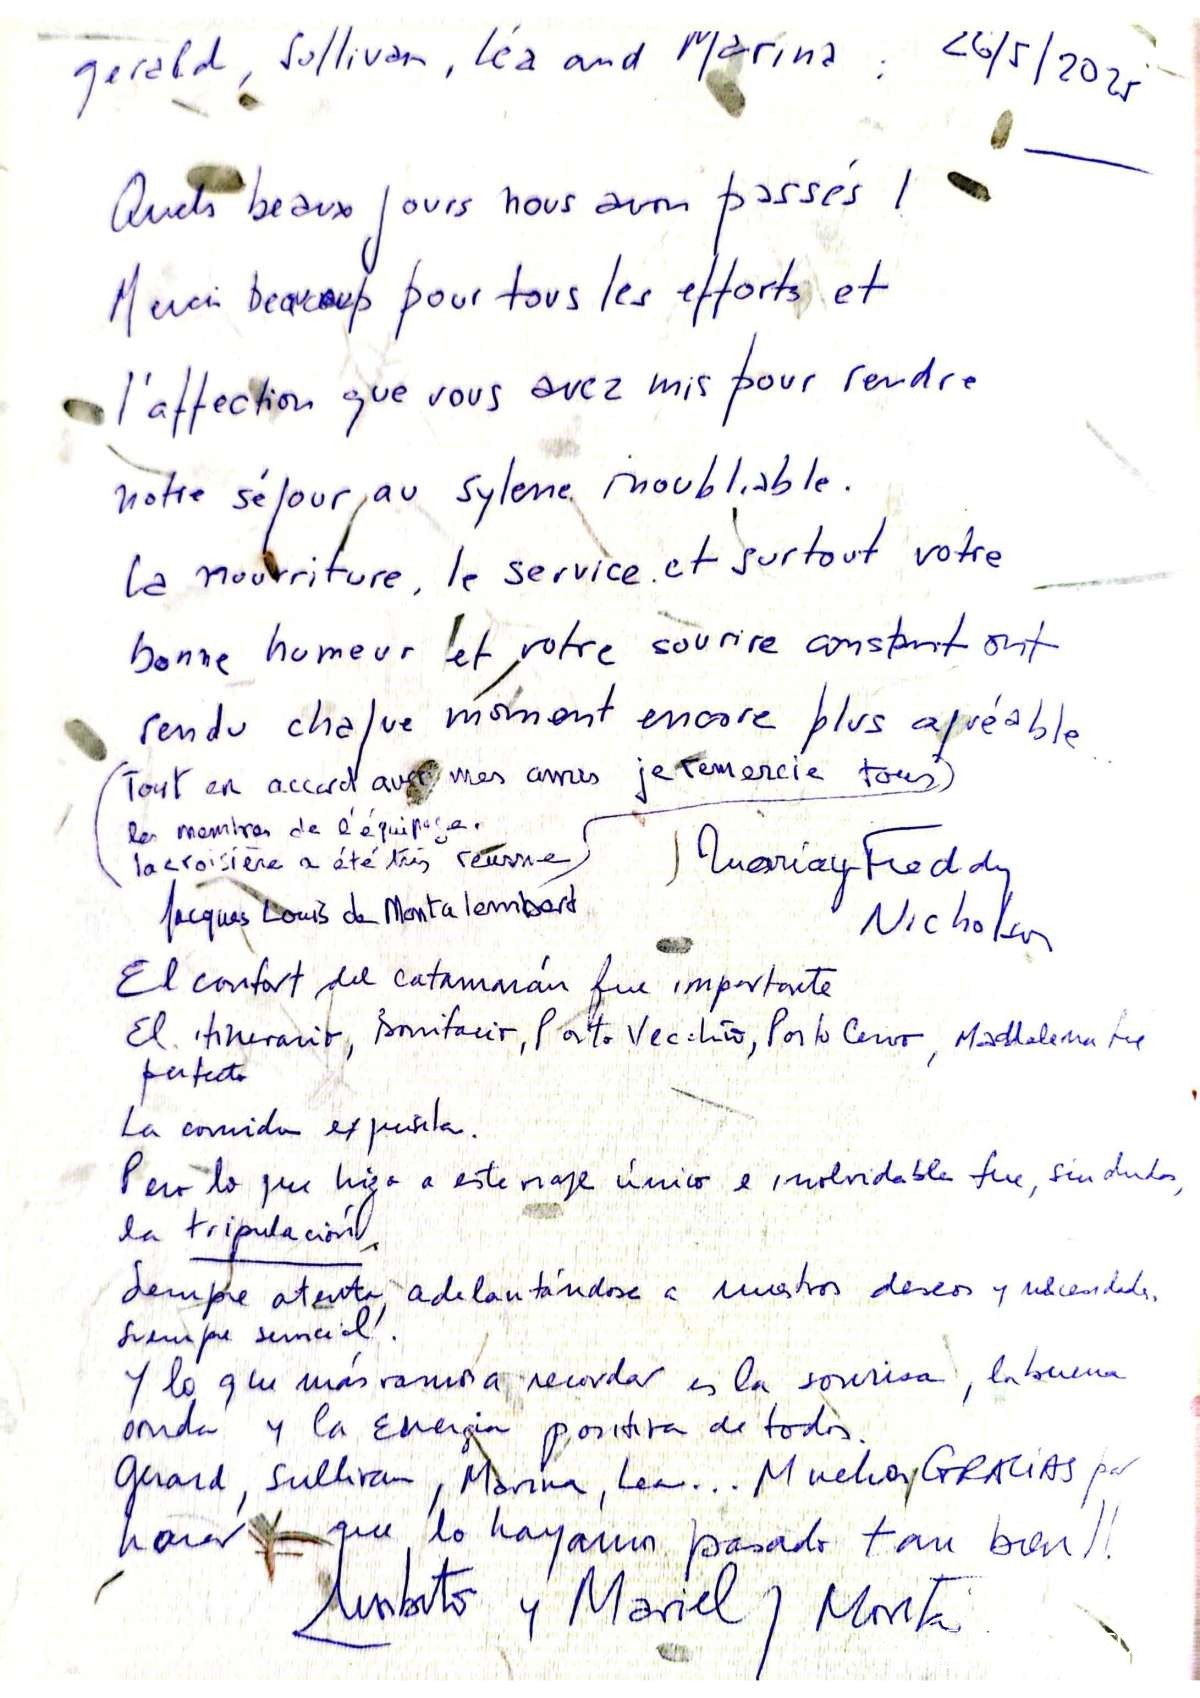 Gerald, Sullivan, Léa and Marina : 26/5/2025
Quels beaux jours nous avon passés !
Merci beaucoup pour tous les efforts et
l'affection que vous avez mis pour rendre
notre séjour au Sylene inoubliable.
La nourriture, le service et surtout votre
bonne humeur et votre sourire constant ont
rendu chaque moment encore plus agréable
(Tout en accord avec mes amis je remercie tous
les membres de l'équipage.
la croisière a été très réussie)
Maria y Freddy
Jacques Louis de Montalembert
Nicholson
El confort del catamarán fue importante
El itinerario, Bonifacio, Porto Vecchio, Porto Cervo, Maddalena fue
perfecto
La comida exquisita.
Pero lo que hizo a este viaje único e inolvidable fue, sin dudas,
la tripulación.
Siempre atenta, adelantándose a nuestros deseos y necesidades.
Siempre servicial.
Y lo que más vamos a recordar es la sonrisa, la buena
onda y la energia positiva de todos.
Gerard, Sullivan, Marina, Lea... Muchas GRACIAS por
hacer que lo hayamos pasado tan bien!!
y Mariel